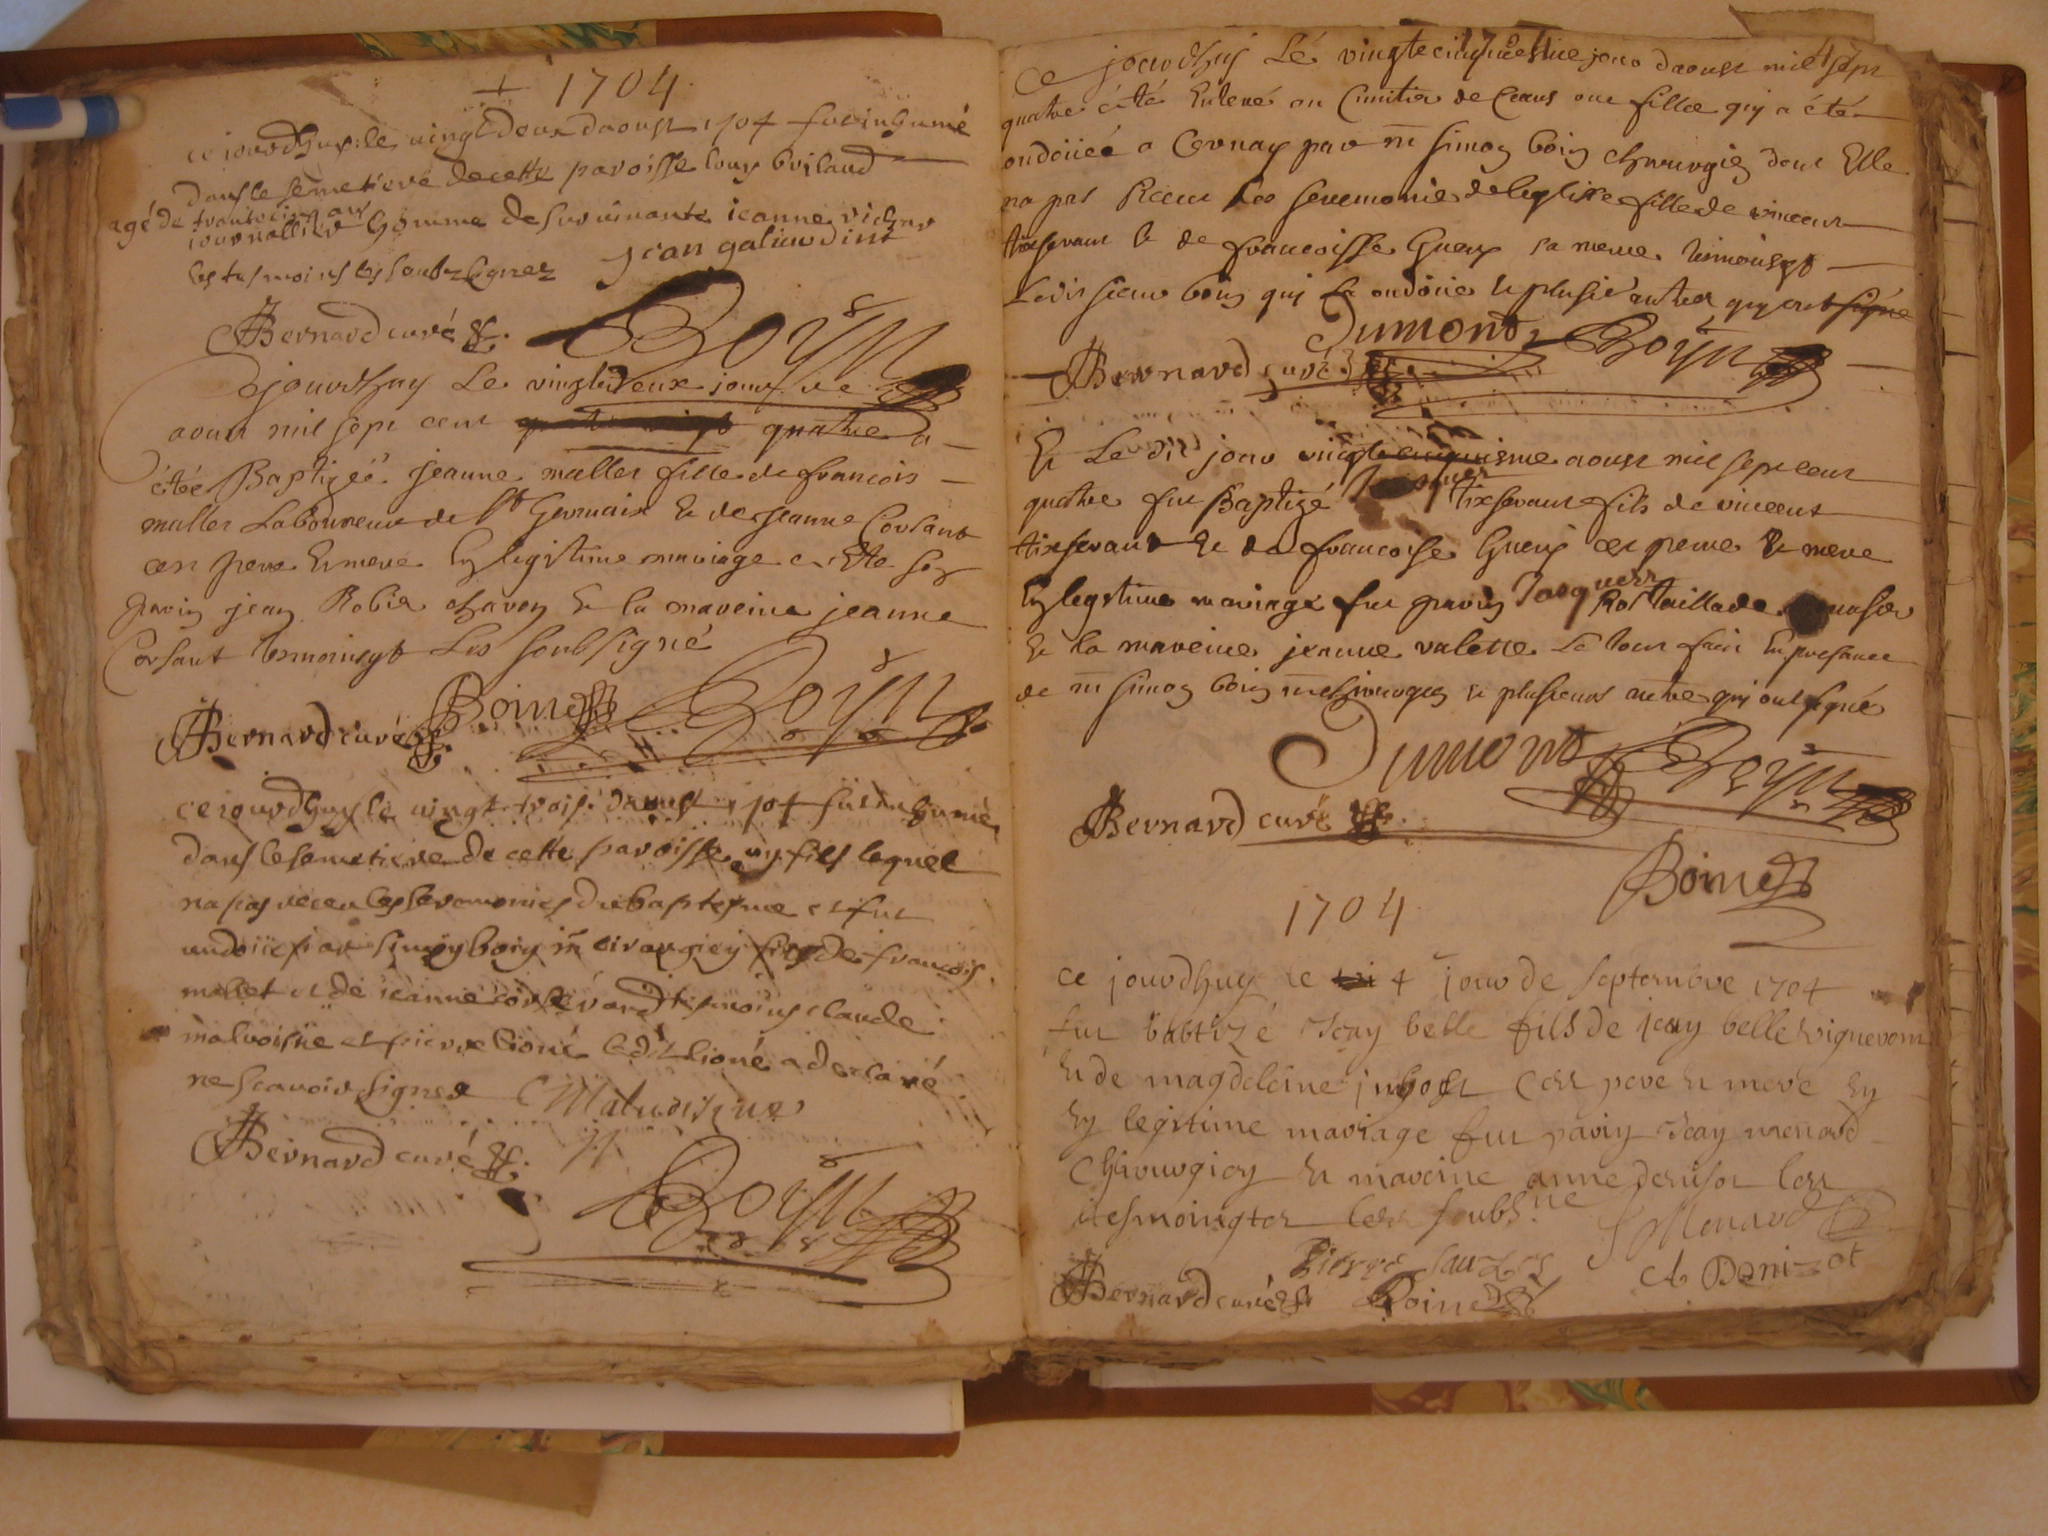 1704
ce jourdhuy le uingt deux daoust 1704 fut inhumé
dans le semetiere de cette paroisse louys
agé de trante cinq ans
journallier homme de survivante jeanne
les tesmoins les soubz signez jean
Bernard curé Boyn
Cejourdhuy Le vingtdeux jour de
aoust mil sept cent quatre a
étéé Baptizéé jeanne mallet fille de francois
mallet Laboureur de St Germain & de Jeanne Corsant
ces pere & mere En legistime mariage a Este son
parin jean Robin & la mareine jeanne
Corsant tesmoingt Les soubsigné
Bernard curé Boinet Boyn
ce jourdhuy le uingt trois daoust 1704 fut inhumé
dans le semetiere de cette paroisse un fils lequel
na pas receu les seremonies du baptesme et fut
ondoiié par simon boin mre cirurgien fils de francois
mallet et de jeanne tesmoins claude
malvoisüe et pierre lioné ledit lioné a declaré
ne scavoir signer Maluoisine
Bernard curé
Boyn
Ce jourdhuy Lé vingtecinquiesme jour daoust mil sept
quatre a été Enteré au Cimitier de Ceans une fille quy a été
ondoiiéé a Cernay par mr simon boin chirurgien dont Elle
na pas Receu Les seremonies de leglisse fille de vincent
tixserant & de francoisse Guery sa merre temoingt
Ledit sieur boin quy La ondoiié & plusie autres quy ont signé
Dumont Boyn
Bernard curé
Et Le dit jour vingtcinquiesme aoust mil sept cent
quatre fut Baptizé Jacques tixserant fils de vincent
tixserant & de francoise Guery ces perre & merre
En legitime mariage fut parin Jacques Rostaillade
& la mareine jeanne valette Le tout fait En presance
de mr simon boin mre chirurgien & plusieurs autre quy ont signé
Dumont Boyn
Bernard curé
Boinet
1704
ce jourdhuy le 4 jour de septembre 1704
fut babtizé Jean belle fils de jean belle vigneron
& de magdeleine ces pere & mere En
En legitime mariage fut parin Jean menard
Chirurgien & mareine anne denisot les
tesmoingtes les soubs.ne S Menard
Pierre A Denizot
Bernard curé Boinet